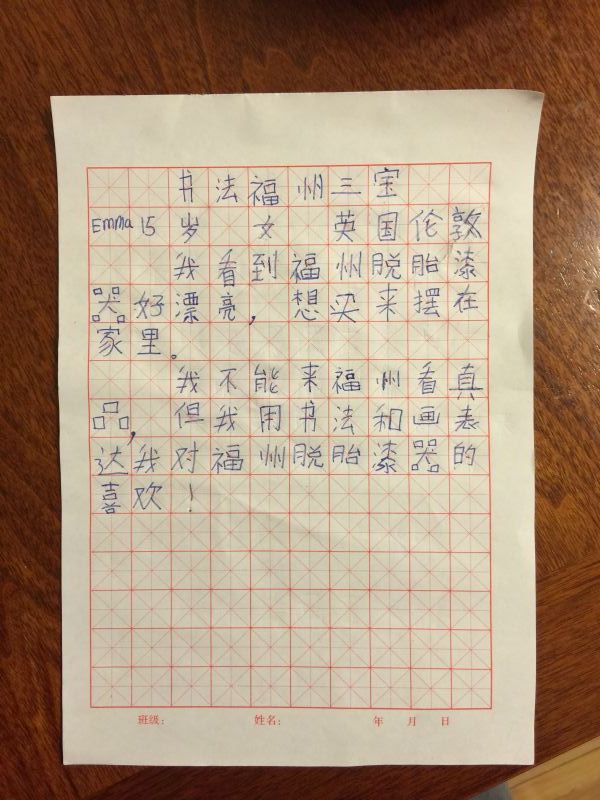 书法福州三宝
Emma 15岁 女 英国伦敦
我看到福州脱胎漆
器好漂亮，想买来摆在
家里。
我不能来福州看真
品，但我用书法和画表
达我对福州脱胎漆器的
喜欢！
班级： 姓名： 年 月 日